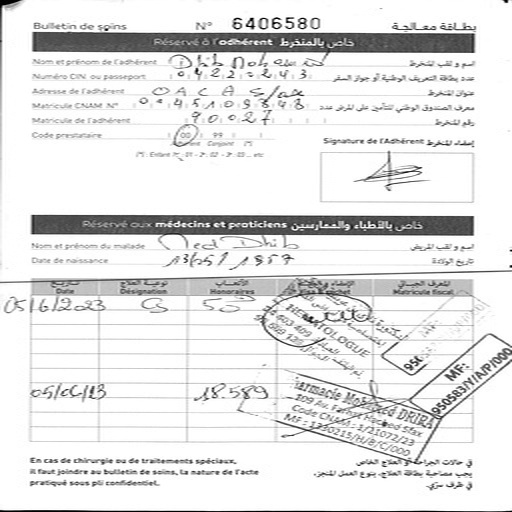 Bulletin de soins N° 6406580 بطاقة معالجة
Réservé à l'adhérent خاص بالمنخرط
Nom et prénom de l'adhérent Dhib اسم و لقب المنخرط
Numéro CIN ou passeport 04222243 عدد بطاقة التعريف الوطنية أو جواز السفر
Adresse de l'adhérent OACA Sfax عنوان المنخرط
Matricule CNAM N° معرف الصندوق الوطني للتأمين على المرض عدد
Matricule de l'adhérent 90027 رقم المنخرط
Code prestataire 00 99
Adhérent Conjoint (*)
(*) : Enfant 1er : 01 - 2e : 02 - 3e : 03 ... etc
Signature de l'Adhérent إمضاء المنخرط
Réservé aux médecins et praticiens خاص بالأطباء والممارسين
Nom et prénom du malade Med Dhib اسم و لقب المريض
Date de naissance 1957 تاريخ الولادة
تاريخ نوعية العلاج الأتعاب المعرف الجبائي
Date Désignation Honoraires Matricule fiscal
05/6/2023 50
HEMATOLOGUE
05/06/23 18.589
MF:
950583/Y/A/P/000
Pharmacie Mohamed DRIRA
109 Av. Sfax
Code CNAM : 1/21072/23
MF : 1330215/H/B/C/000
En cas de chirurgie ou de traitements spéciaux,
il faut joindre au bulletin de soins, la nature de l'acte
pratiqué sous pli confidentiel.
في حالات الجراحة أو العلاج الخاص
يجب مصاحبة بطاقة العلاج، بنوع العمل المنجز،
في ظرف سري.